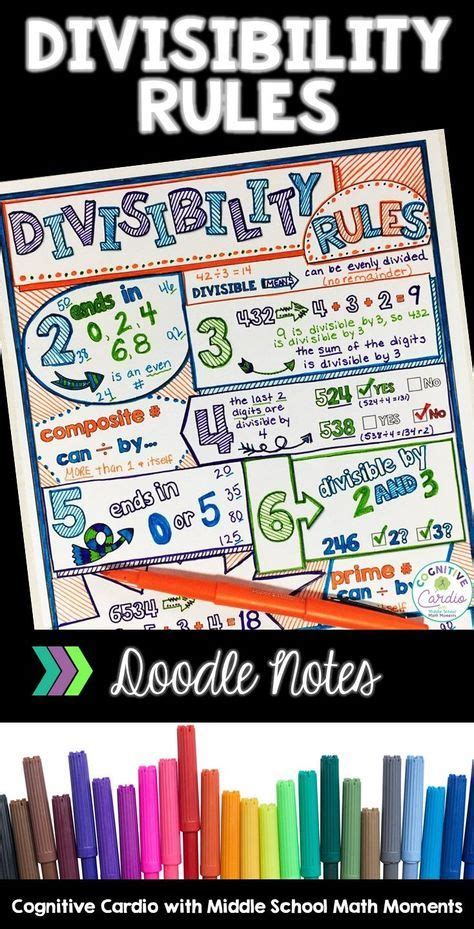 DIVISIBILITY
RULES
DIVISIBILITY
RULES
42÷3=14
DIVISIBLE MEANS
can be evenly divided
(no remainder)
2
ends in
0, 2, 4
6, 8
is an even
#
50
46
38
92
24
3
432 → 4 + 3 + 2 = 9
9 is divisible by 3, so 432
is divisible by 3
the sum of the digits
is divisible by 3
composite #
can ÷ by...
MORE than 1 & itself
4
the last 2
digits are
divisible by
4
524 ✓YES □ No
(524÷4=131)
538 □ YES ✓No
(538÷4=134 r2)
5
ends in
0 or 5
20
35
80
125
6
divisible by
2 AND 3
246 ✓2? ✓3?
6534
prime #
can ÷ by...
itself
COGNITIVE
Cardio
Middle School
Math Moments
Doodle Notes
Cognitive Cardio with Middle School Math Moments